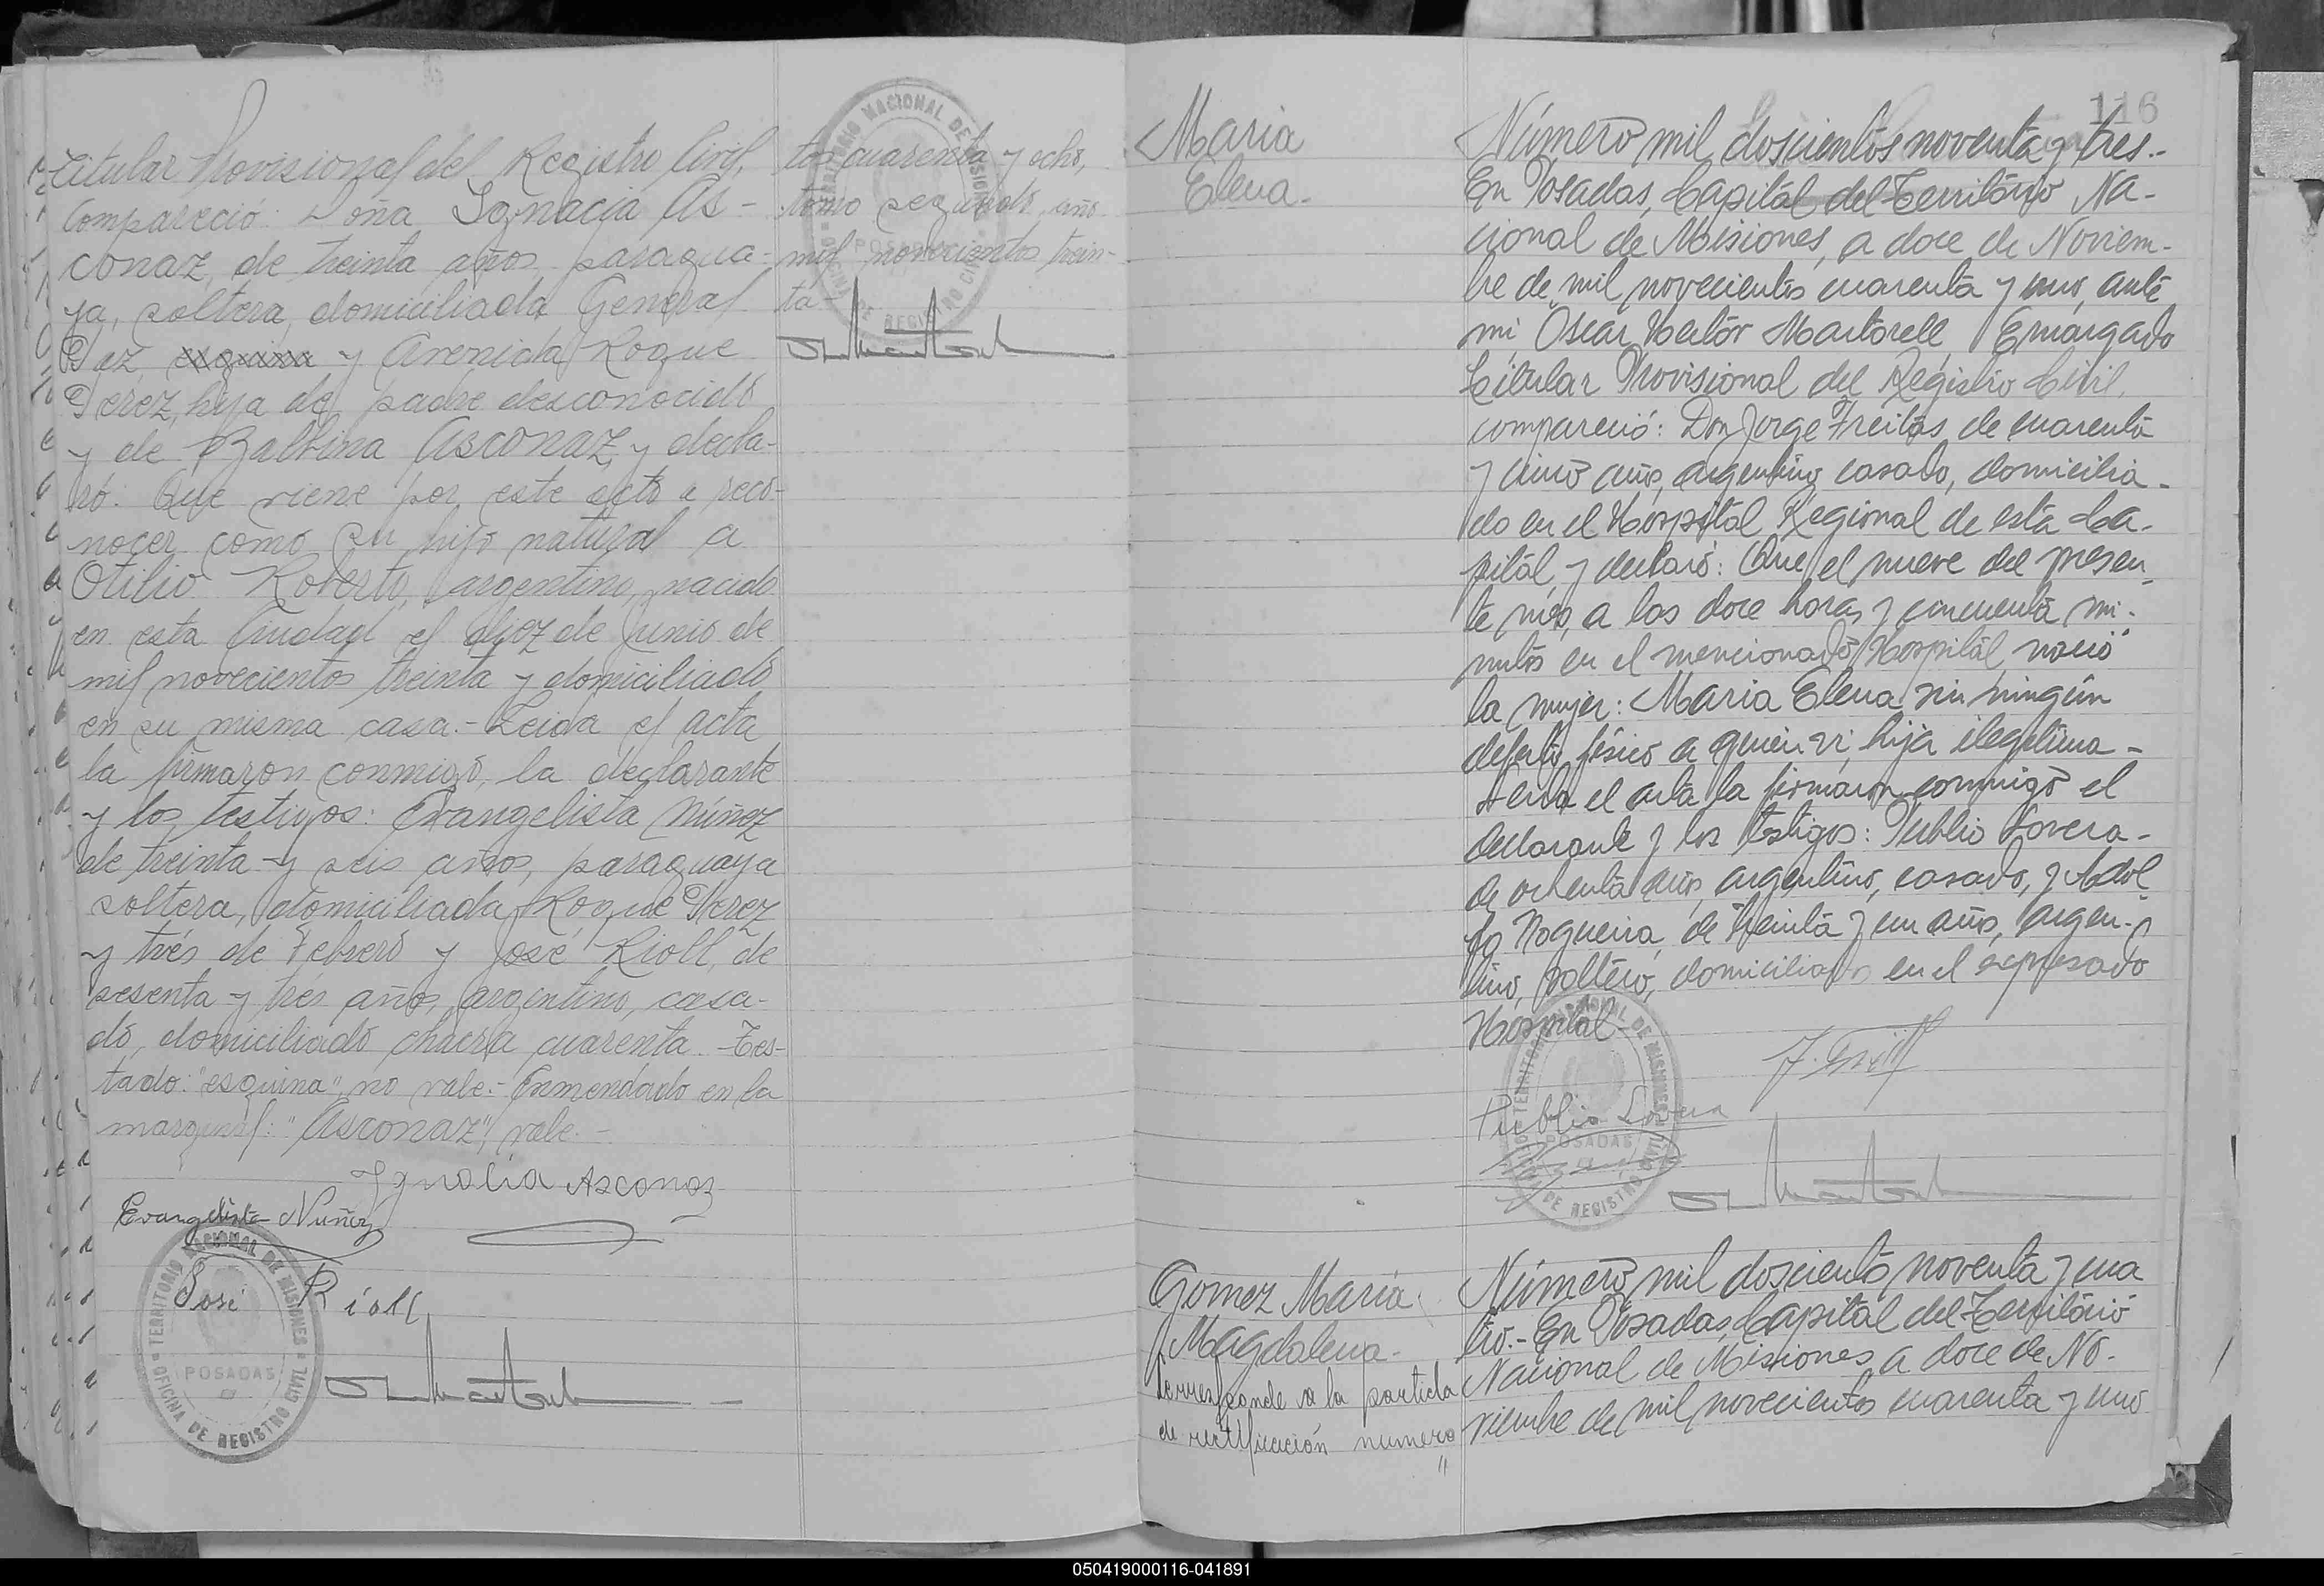 Titular Provisional del Registro Civil,
Compareció: Doña Ignacia As-
conaz, de treinta años, paragua-
ya, soltera, domiciliada General
Paz, esquina y Avenida Roque
Perez, hija de padre desconocido
y de Balbina Asconaz, y decla-
ró: Que viene por este acto a reco-
nocer como su hijo natural a
Otilio Roberto, argentino, nacido
en esta Ciudad el diez de Junio de
mil novecientos treinta y domiciliado
en su misma casa.- Leida el acta
la firmaron conmigo, la declarante
y los testigos: Evangelista Núñez
de treinta y seis años, paraguaya
soltera, domiciliada Roque Perez
y trés de Febrero y José Rioll, de
sesenta y tres años, argentino, casa-
do, domiciliado chacra cuarenta.-Tes-
tado: "esquina", no vale.- Enmendado en la
marginal: "Asconaz", vale.-
Ignacia Asconaz
Evangelista Nuñez
José Rioll
TERRITORIO NACIONAL DE MISIONES
POSADAS
OFICINA DE REGISTRO CIVIL
tos cuarenta y ocho,
tomo segundo, año
mil novecientos trein-
ta-
TERRITORIO NACIONAL DE MISIONES
POSADAS
OFICINA DE REGISTRO CIVIL
116
Maria
Elena.-
Número mil doscientos noventa y tres.-
En Posadas, Capital del Território Na-
cional de Misiones, a doce de Noviem-
bre de mil novecientos cuarenta y uno, ante
mi, Oscar Hector Martorell, Encargado
Titular Provisional del Registro Civil,
compareció: Don Jorge Freitas, de cuarenta
y cinco años, argentino, casado, domicilia-
do en el Hospital Regional de esta Ca-
pital y declaró: Que el nueve del presen-
te mes, a las doce horas y cincuenta mi-
nutos en el mencionado Hospital, nació
la mujer: Maria Elena sin ningún
defecto físico a quien vi, hija ilegitima-
Leida el acta la firmaron conmigo el
declarante y los testigos: Publio Lovera-
de ochenta años, argentino, casado, y Adol
fo Nogueira, de treinta y un años, argen-
tino, soltero, domiciliados en el expresado
Hospital-
Publio Lovera
TERRITORIO NACIONAL DE MISIONES
POSADAS
OFICINA DE REGISTRO CIVIL
Gomez Maria
Magdalena.-
Corresponde a la partida
de rectificación numero
"
Número mil doscientos noventa y cua
tro.- En Posadas, Capital del Território
Nacional de Misiones, a doce de No-
viembre de mil novecientos cuarenta y uno
050419000116-041891